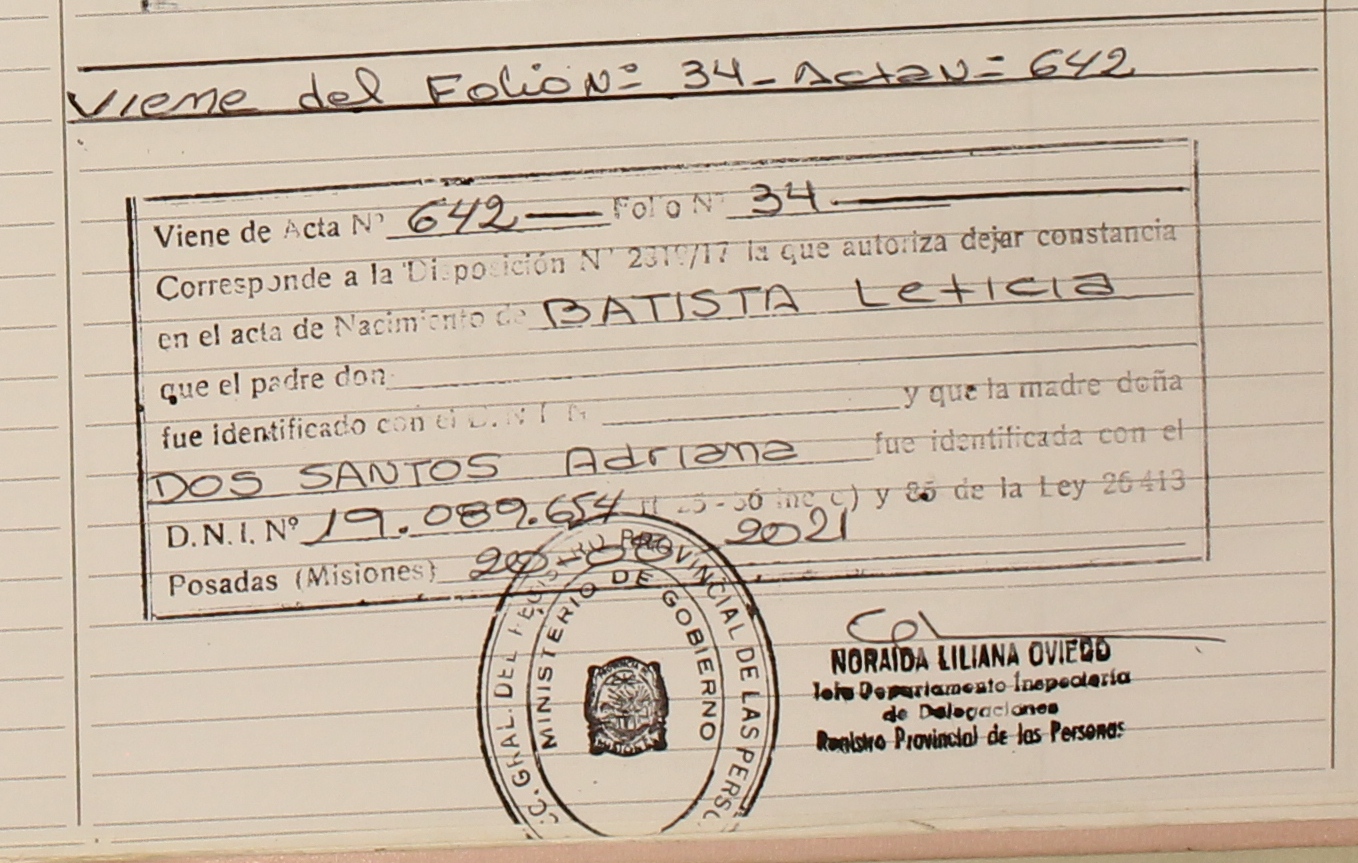 Viene del Folio Nº 34 - Acta Nº 642
Viene de Acta Nº 642 — Folio Nº 34 —
Corresponde a la Disposición Nº /17 la que autoriza dejar constancia
en el acta de Nacimiento de BATISTA Leticia
que el padre don
fue identificado con el D.N.I. N y que la madre doña
DOS SANTOS Adriana fue identificada con el
D.N.I. Nº 19.089.654 inc c) y 85 de la Ley 26413
Posadas (Misiones) 20 2021
GRAL. DEL REGISTRO PROVINCIAL DE LAS
MINISTERIO DE GOBIERNO
MISIONES
NORAIDA LILIANA OVIEDO
Jefe Departamento Inspectoría
de Delegaciones
Registro Provincial de las Personas